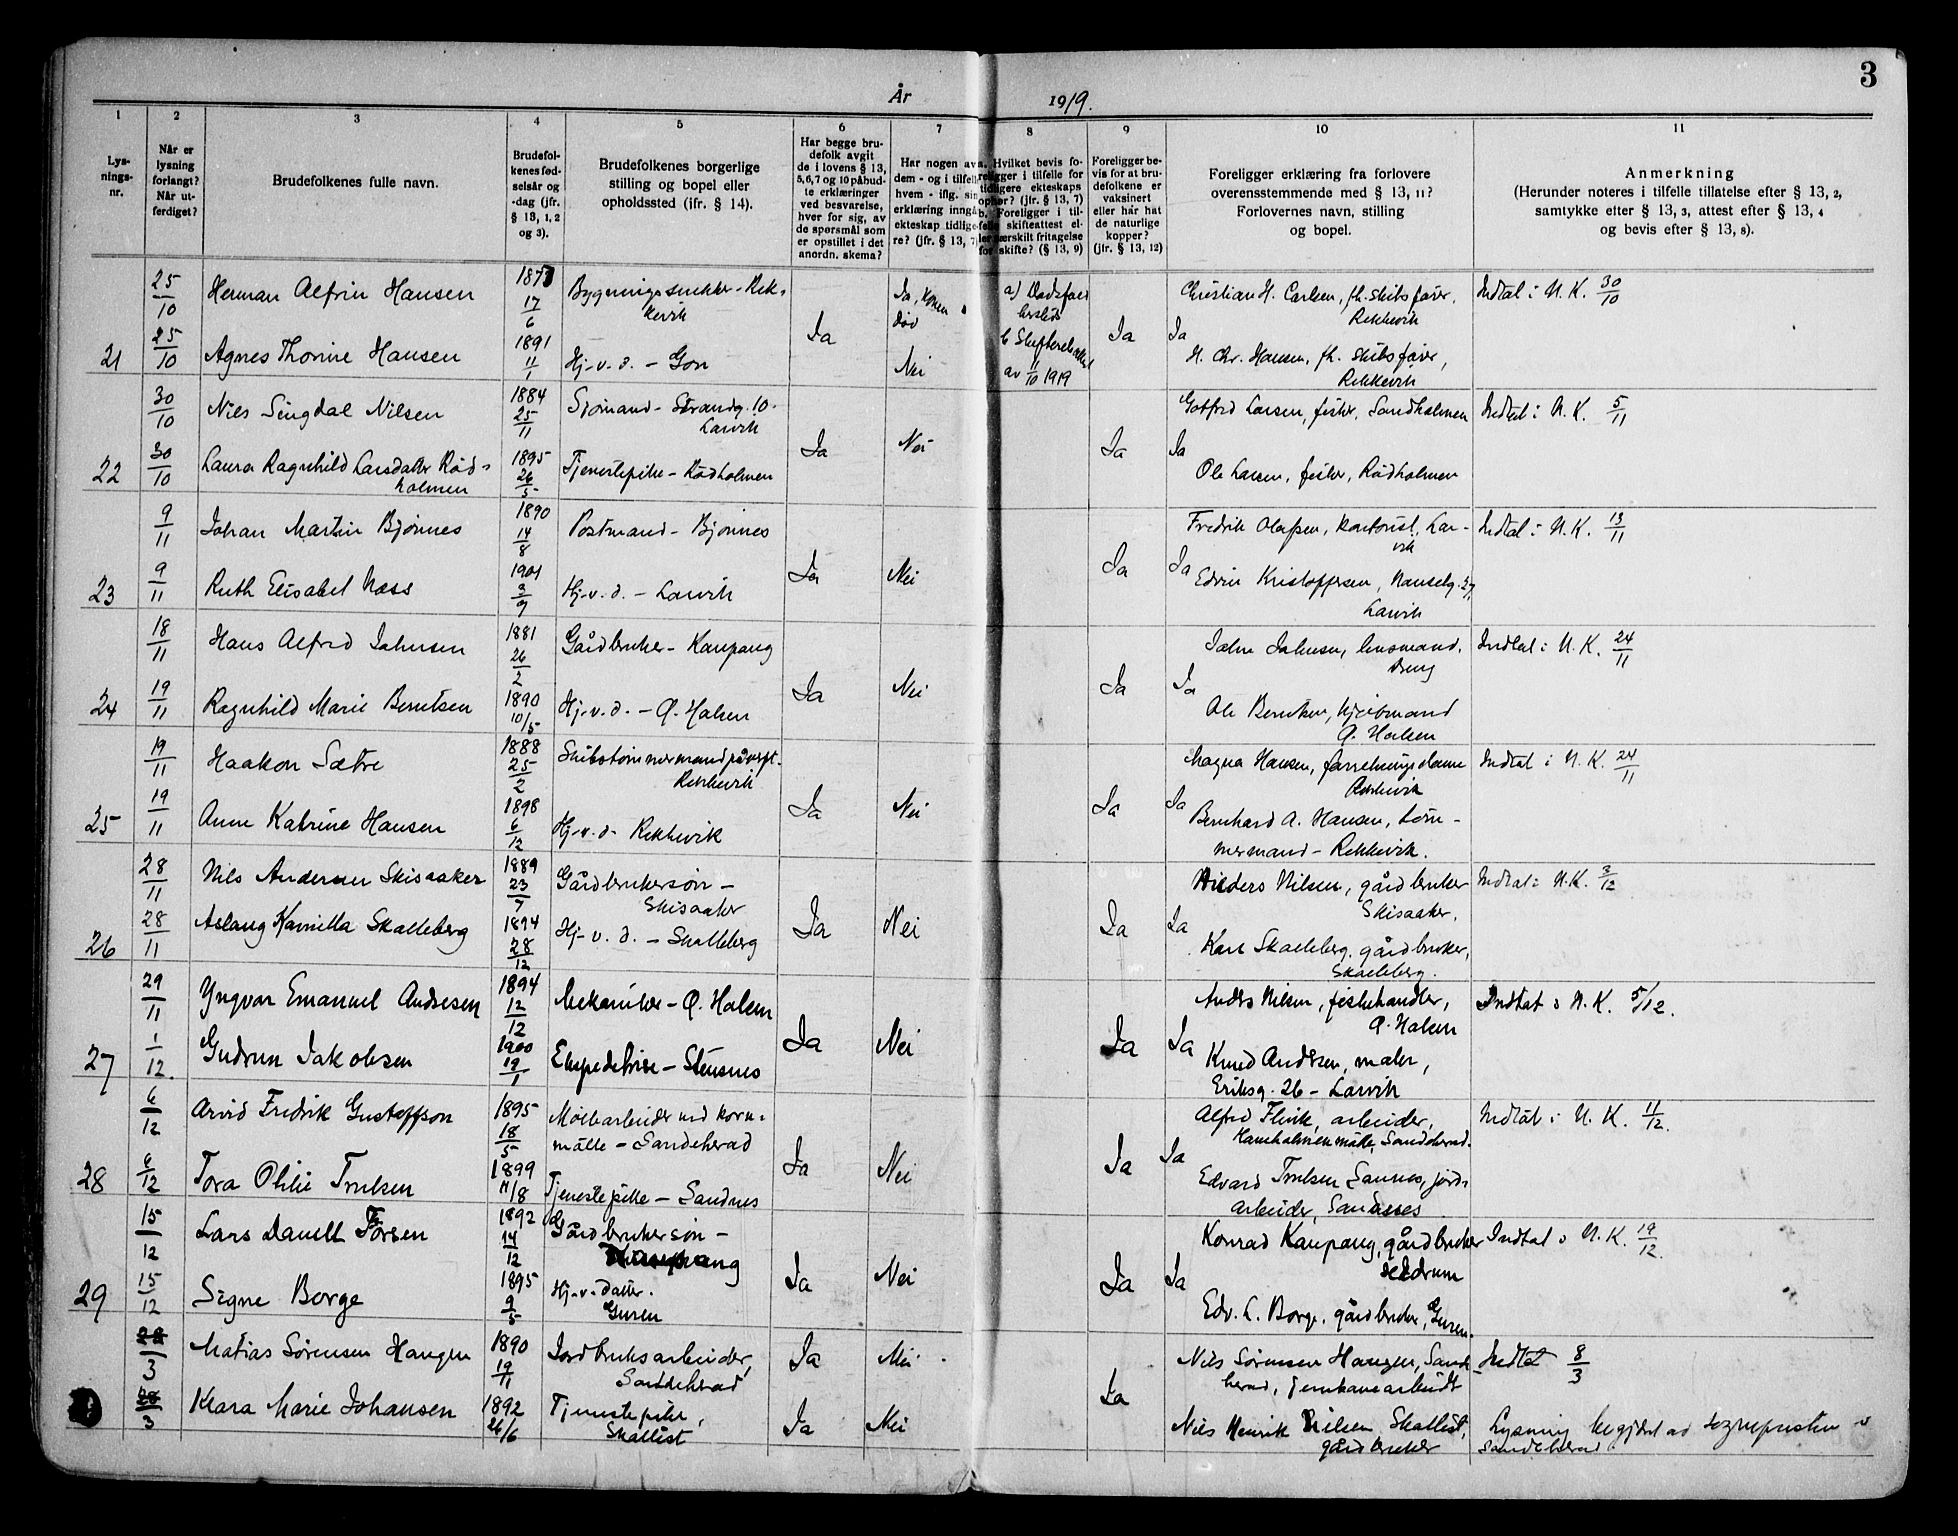 3
År 1919.
1 2 3 4 5 6 7 8 9 10 11
Lys-
nings-
nr.
Når er
lysning
forlangt?
Når ut-
ferdiget?
Brudefolkenes fulle navn.
Brudefol-
kenes fød-
selsår og
-dag (jfr.
§ 13, 1, 2
og 3).
Brudefolkenes borgerlige
stilling og bopel eller
opholdssted (ifr. § 14).
Har begge bru-
defolk avgit
de i lovens § 13,
5, 6, 7 og 10 påbud-
te erklæringer
ved besvarelse,
hver for sig, av
de spørsmål som
er opstillet i det
anordn. skema?
Har nogen av
dem - og i tilfelle
hvem - iflg. sin
erklæring inngå
ekteskap tidlige-
re? (jfr. § 13, 7)
a. Hvilket bevis fo-
religger i tilfelle for
tidligere ekteskaps
ophør? (jfr. § 13, 7)
b. Foreligger i til-
felle skifteattest el-
ler særskilt fritagelse
for skifte? (§ 13, 9)
Foreligger be-
vis for at bru-
defolkene er
vaksinert
eller har hat
de naturlige
kopper?
(jfr. § 13, 12)
Foreligger erklæring fra forlovere
overensstemmende med § 13, 11?
Forlovernes navn, stilling
og bopel.
Anmerkning
(Herunder noteres i tilfelle tillatelse efter § 13, 2,
samtykke efter § 13, 3, attest efter § 13, 4
og bevis efter § 13, 8).
25/10 Herman Alfrin Hansen 1877 17/6 Bygningssnekker - Rek-
kevik
Ja, konen
død
a) Dødsfall
bevist
b Skifteattest
av 11/10 1919
Christian H. Carlsen, fh. skibsfører,
Rekkevik
Indtat i N. K. 30/10
Ja Ja Ja
21 25/10 Agnes Thorine Hansen 1891 11/1 Hj. v. d. - Gon Nei
H. Chr. Hansen, fh. skibsfører,
Rekkevik
30/10 Nils Singdal Nilsen 1884 25/11 Sjømand - Strandg. 10.
Larvik
Gotfred Larsen, fisker, Sandholmen
Indtat i N. K. 5/11
Ja Nei Ja Ja
22 30/10 Laura Ragnhild Larsdatter Rød-
holmen
1895 26/5 Tjenestepike - Rødholmen
Ole Larsen, fisker, Rødholmen
9/11 Johan Martin Bjønnes 1890 14/8 Postmand - Bjønnes
Fredrik Olafsen, kontorist, Lar-
vik
Indtat i N. K. 13/11
Ja Nei Ja Ja
23 9/11 Ruth Elisabet Næss 1901 3/9 Hj. v. d. - Larvik
Edvin Kristoffersen, Nanselg. 27,
Larvik
18/11 Hans Alfred Johnsen 1881 26/2 Gårdbruker - Kaupang
John Johnsen, lensmand,
Indtat i N. K. 24/11
Ja Nei Ja Ja
24 19/11 Ragnhild Marie Berntsen 1890 10/5 Hj. v. d. - Ø. Halsen
Ole Berntsen,
Ø. Halsen
19/11 Haakon Sætre 1888 25/2 Skibstømmermand på verft.
Rekkevik
Magna Hansen, forretningsdame
Rekkevik
Indtat i N. K. 24/11
Ja Nei Ja Ja
25 19/11 Anne Katrine Hansen 1898 6/12 Hj. v. d - Rekkevik
Bernhard A. Hansen, tøm-
mermand - Rekkevik.
28/11 Nils Andersen Skisaaker 1889 23/7 Gårdbrukersøn -
Skisaaker
Anders Nilsen, gårdbruker
Skisaaker,
Indtat i N. K. 3/12
Ja Nei Ja Ja
26 28/11 Aslaug Kamilla Skalleberg 1894 28/12 Hj. v. d. - Skalleberg
Karl Skalleberg, gårdbruker,
Skalleberg.
29/11 Yngvar Emanuel Andresen 1894 12/12 Mekaniker - Ø. Halsen
Anders Nilsen, fiskehandler,
Ø. Halsen
Indtat i N. K. 5/12.
Ja Nei Ja Ja
27 1/12. Gudrun Jakobsen 1900 19/1 Ekspeditrise - Stensnes
Knud Andersen, maler,
Eriksg. 26 - Larvik
6/12 Arvid Fredrik Gustoffson 1895 18/5 Møllearbeider ved korn-
mølle - Sandeherad
Alfred Flink, arbeider,
mølle, Sandeherad.
Indtat i N. K. 11/12.
Ja Nei Ja Ja
28 6/12 Tora Otilie Trulsen 1899 11/8 Tjenestepike - Sandnes
Edvard Trulsen Sannes, jord-
arbeider, Sannes
15/12 Lars Danell Torsen 1892 14/12 Gårdbrukersøn -
Kaupang
Konrad Kaupang, gårdbruker
Indtat i N. K. 19/12.
Ja Nei Ja Ja
29 15/12 Signe Borge 1895 9/5 Hj. v. datter.
Guren
Edv. L. Borge, gårdbruker, Guren.
28/3 Matias Sørensen Haugen 1890 19/11 Jordbruksarbeider,
Sandeherad
Ja Nei
Nils Sørensen Haugen, Sande
herad, jernbanearbeider
Indtat 8/3
Ja
28/3 Klara Marie Johansen 1892 26/6 Tjenestepike,
Skallist
Ja Nei
Nils Henrik Nilsen Skallist,
gårdbruker
Lysning begjært av sognepresten i
Sandeherad